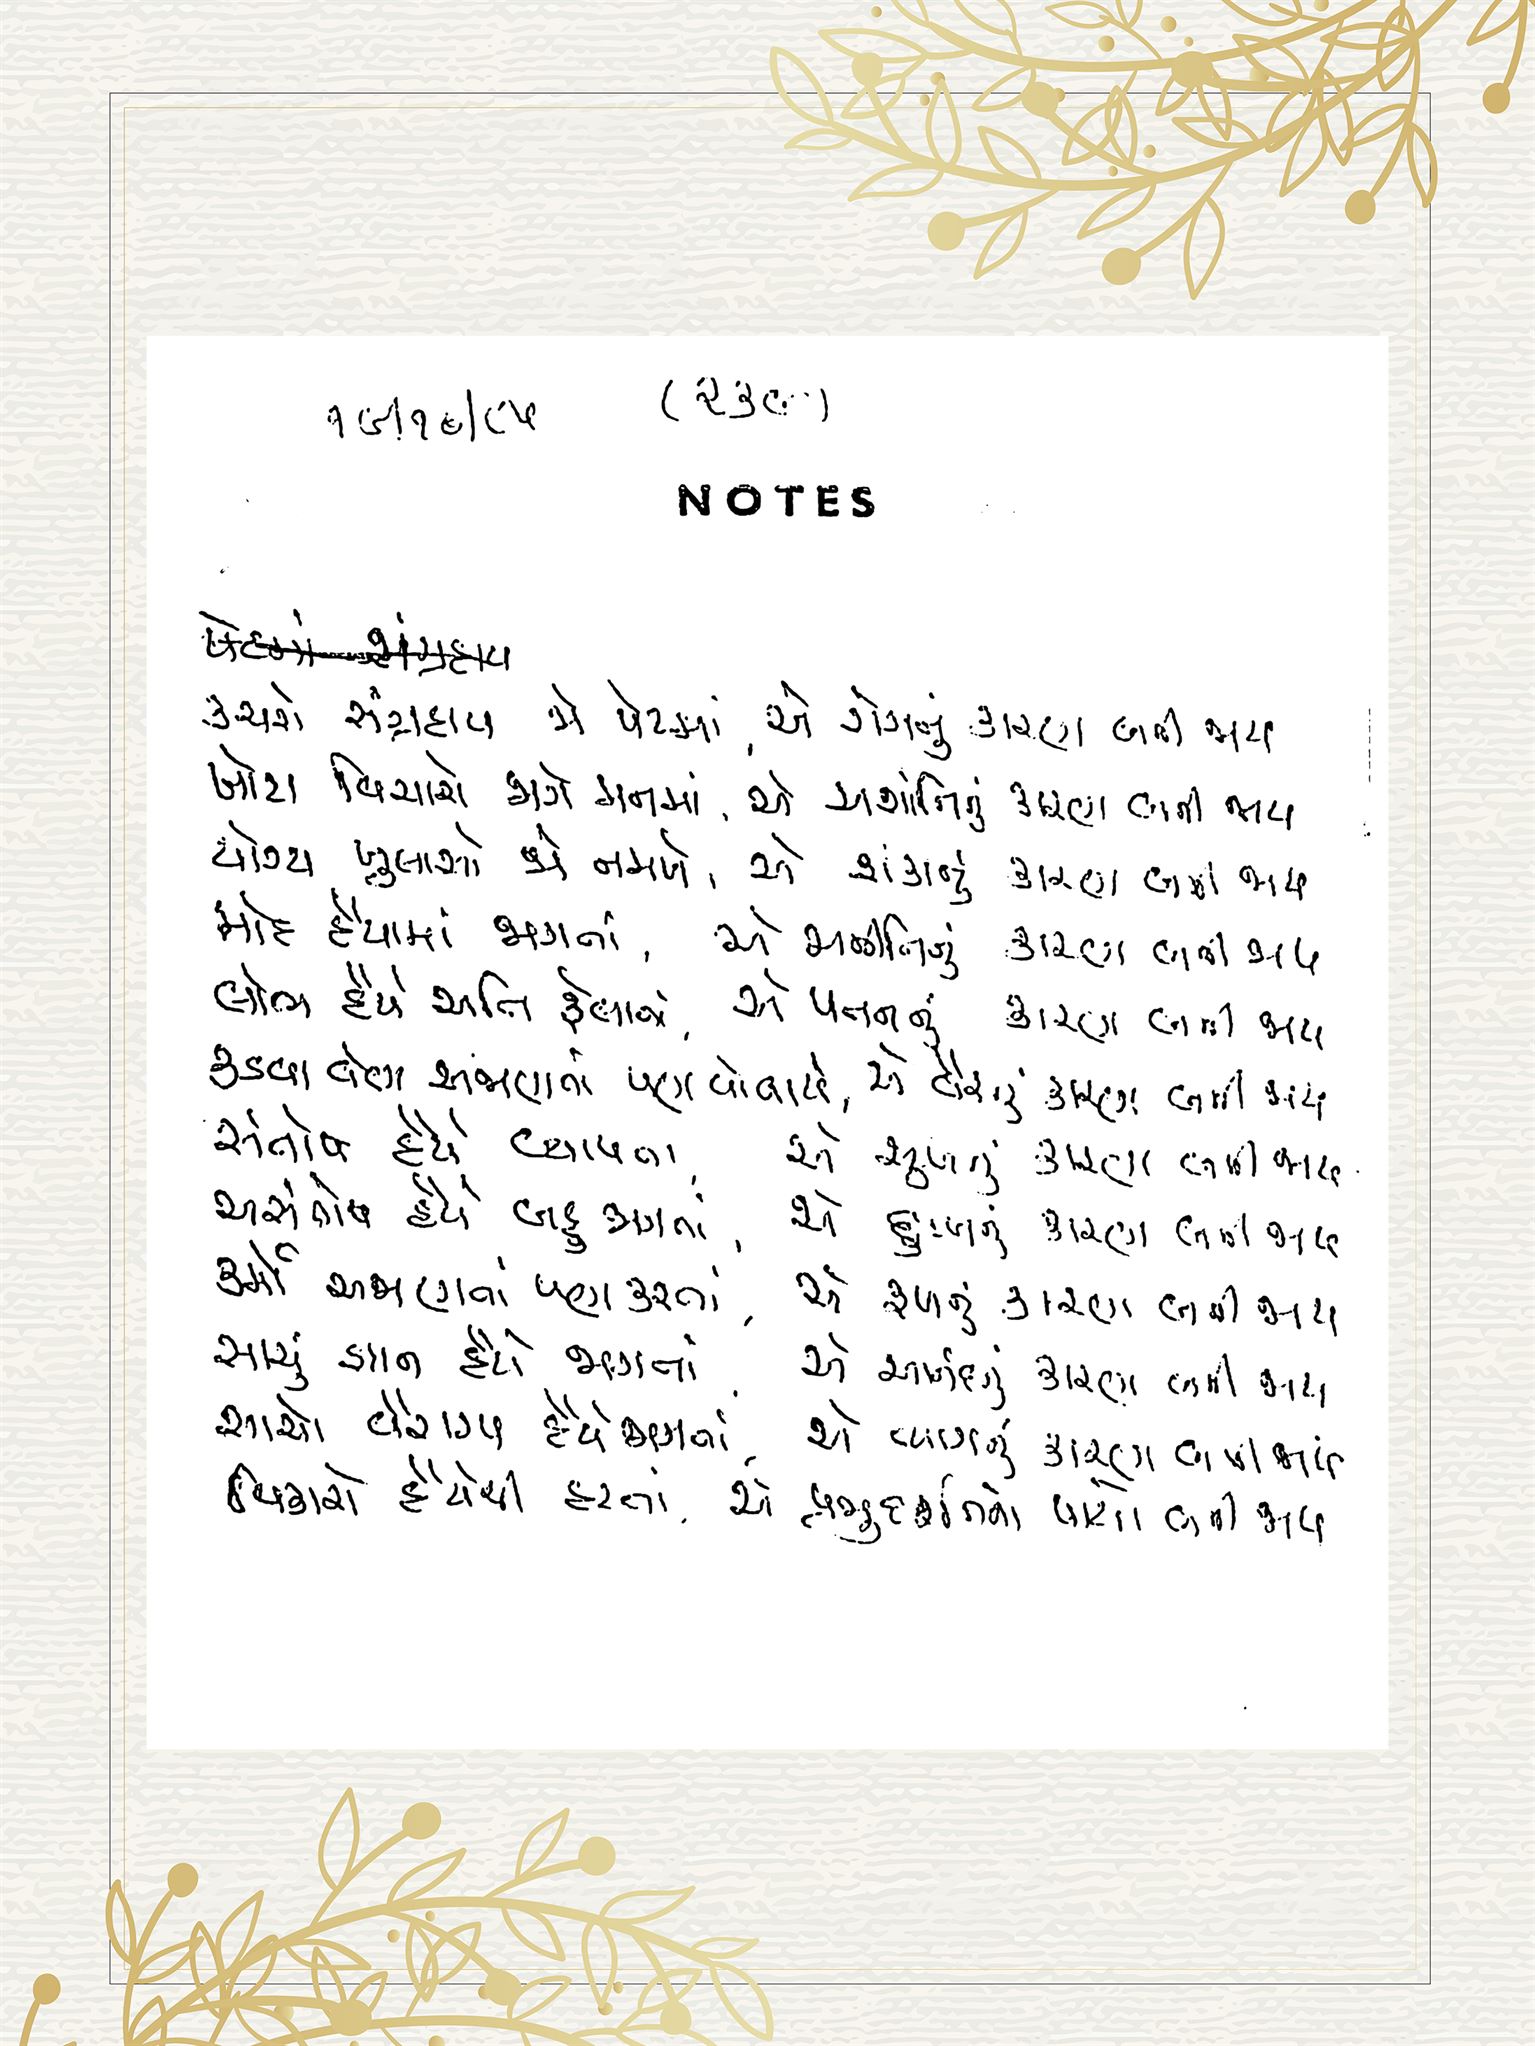 (૨૩૯)
NOTES
કચરો સંગ્રહાય જો પેટમાં, એ રોગનું કારણ બની જાય
ખોટા વિચારો જાગે મનમાં, એ અશાંતિનું કારણ બની જાય
યોગ્ય ખુલાસો જો નમળે, એ શંકાનું કારણ બની જાય
મોહ હૈયામાં જાગતાં, એ કારણ બની જાય
લોભ હૈયે અતિ ફેલાતાં, એ પતનનું કારણ બની જાય
કડવા વેણ અજાણતાં પણ બોલાયે, એ વૈરનું કારણ બની જાય
સંતોષ હૈયે વ્યાપતા, એ સુખનું કારણ બની જાય
અસંતોષ હૈયે બહુ જાગતાં, એ દુઃખનું કારણ બની જાય
કર્મો અજાણતાં પણ કરતાં, એ ફળનું કારણ બની જાય
સાચું જ્ઞાન હૈયે જાગતાં, એ આનંદનું કારણ બની જાય
સાચો વૈરાગ્ય હૈયે જાગતાં, એ ત્યાગનું કારણ બની જાય
વિકારો હૈયેથી હટતાં, એ પ્રભુદર્શનનો બની જાય